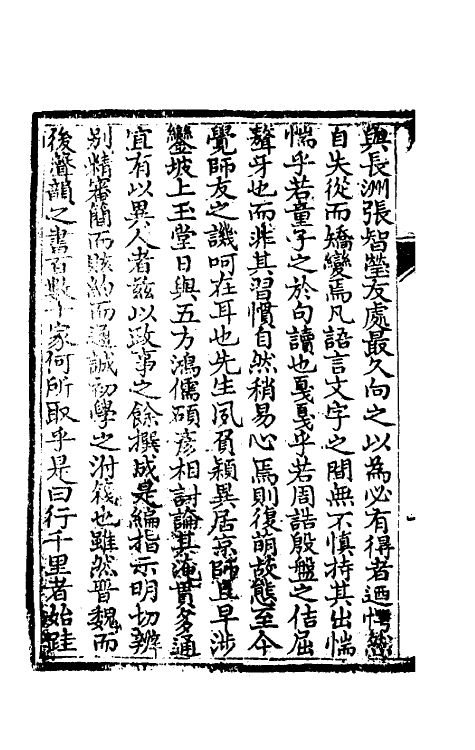 與長洲張智瑩友處最久向之以為必有得者迺愕然
自失從而矯變焉凡語言文字之間無不慎持其出惴
惴乎若童子之於句讀也戛戛乎若周誥殷盤之佶屈
聱牙也而非其習慣自然稍易心焉則復萌故態至今
覺師友之譏呵在耳也先生夙質穎異居京師且早涉
鑾坡上玉堂日與五方鴻儒碩彥相討論其淹貫多通
宜有以異人者兹以致事之餘撰成是編指示明切辨
別精審簡而賅約而通誠初學之津筏也雖然晋魏而
後聲韻之書百數十家何所取乎是曰行千里者始跬